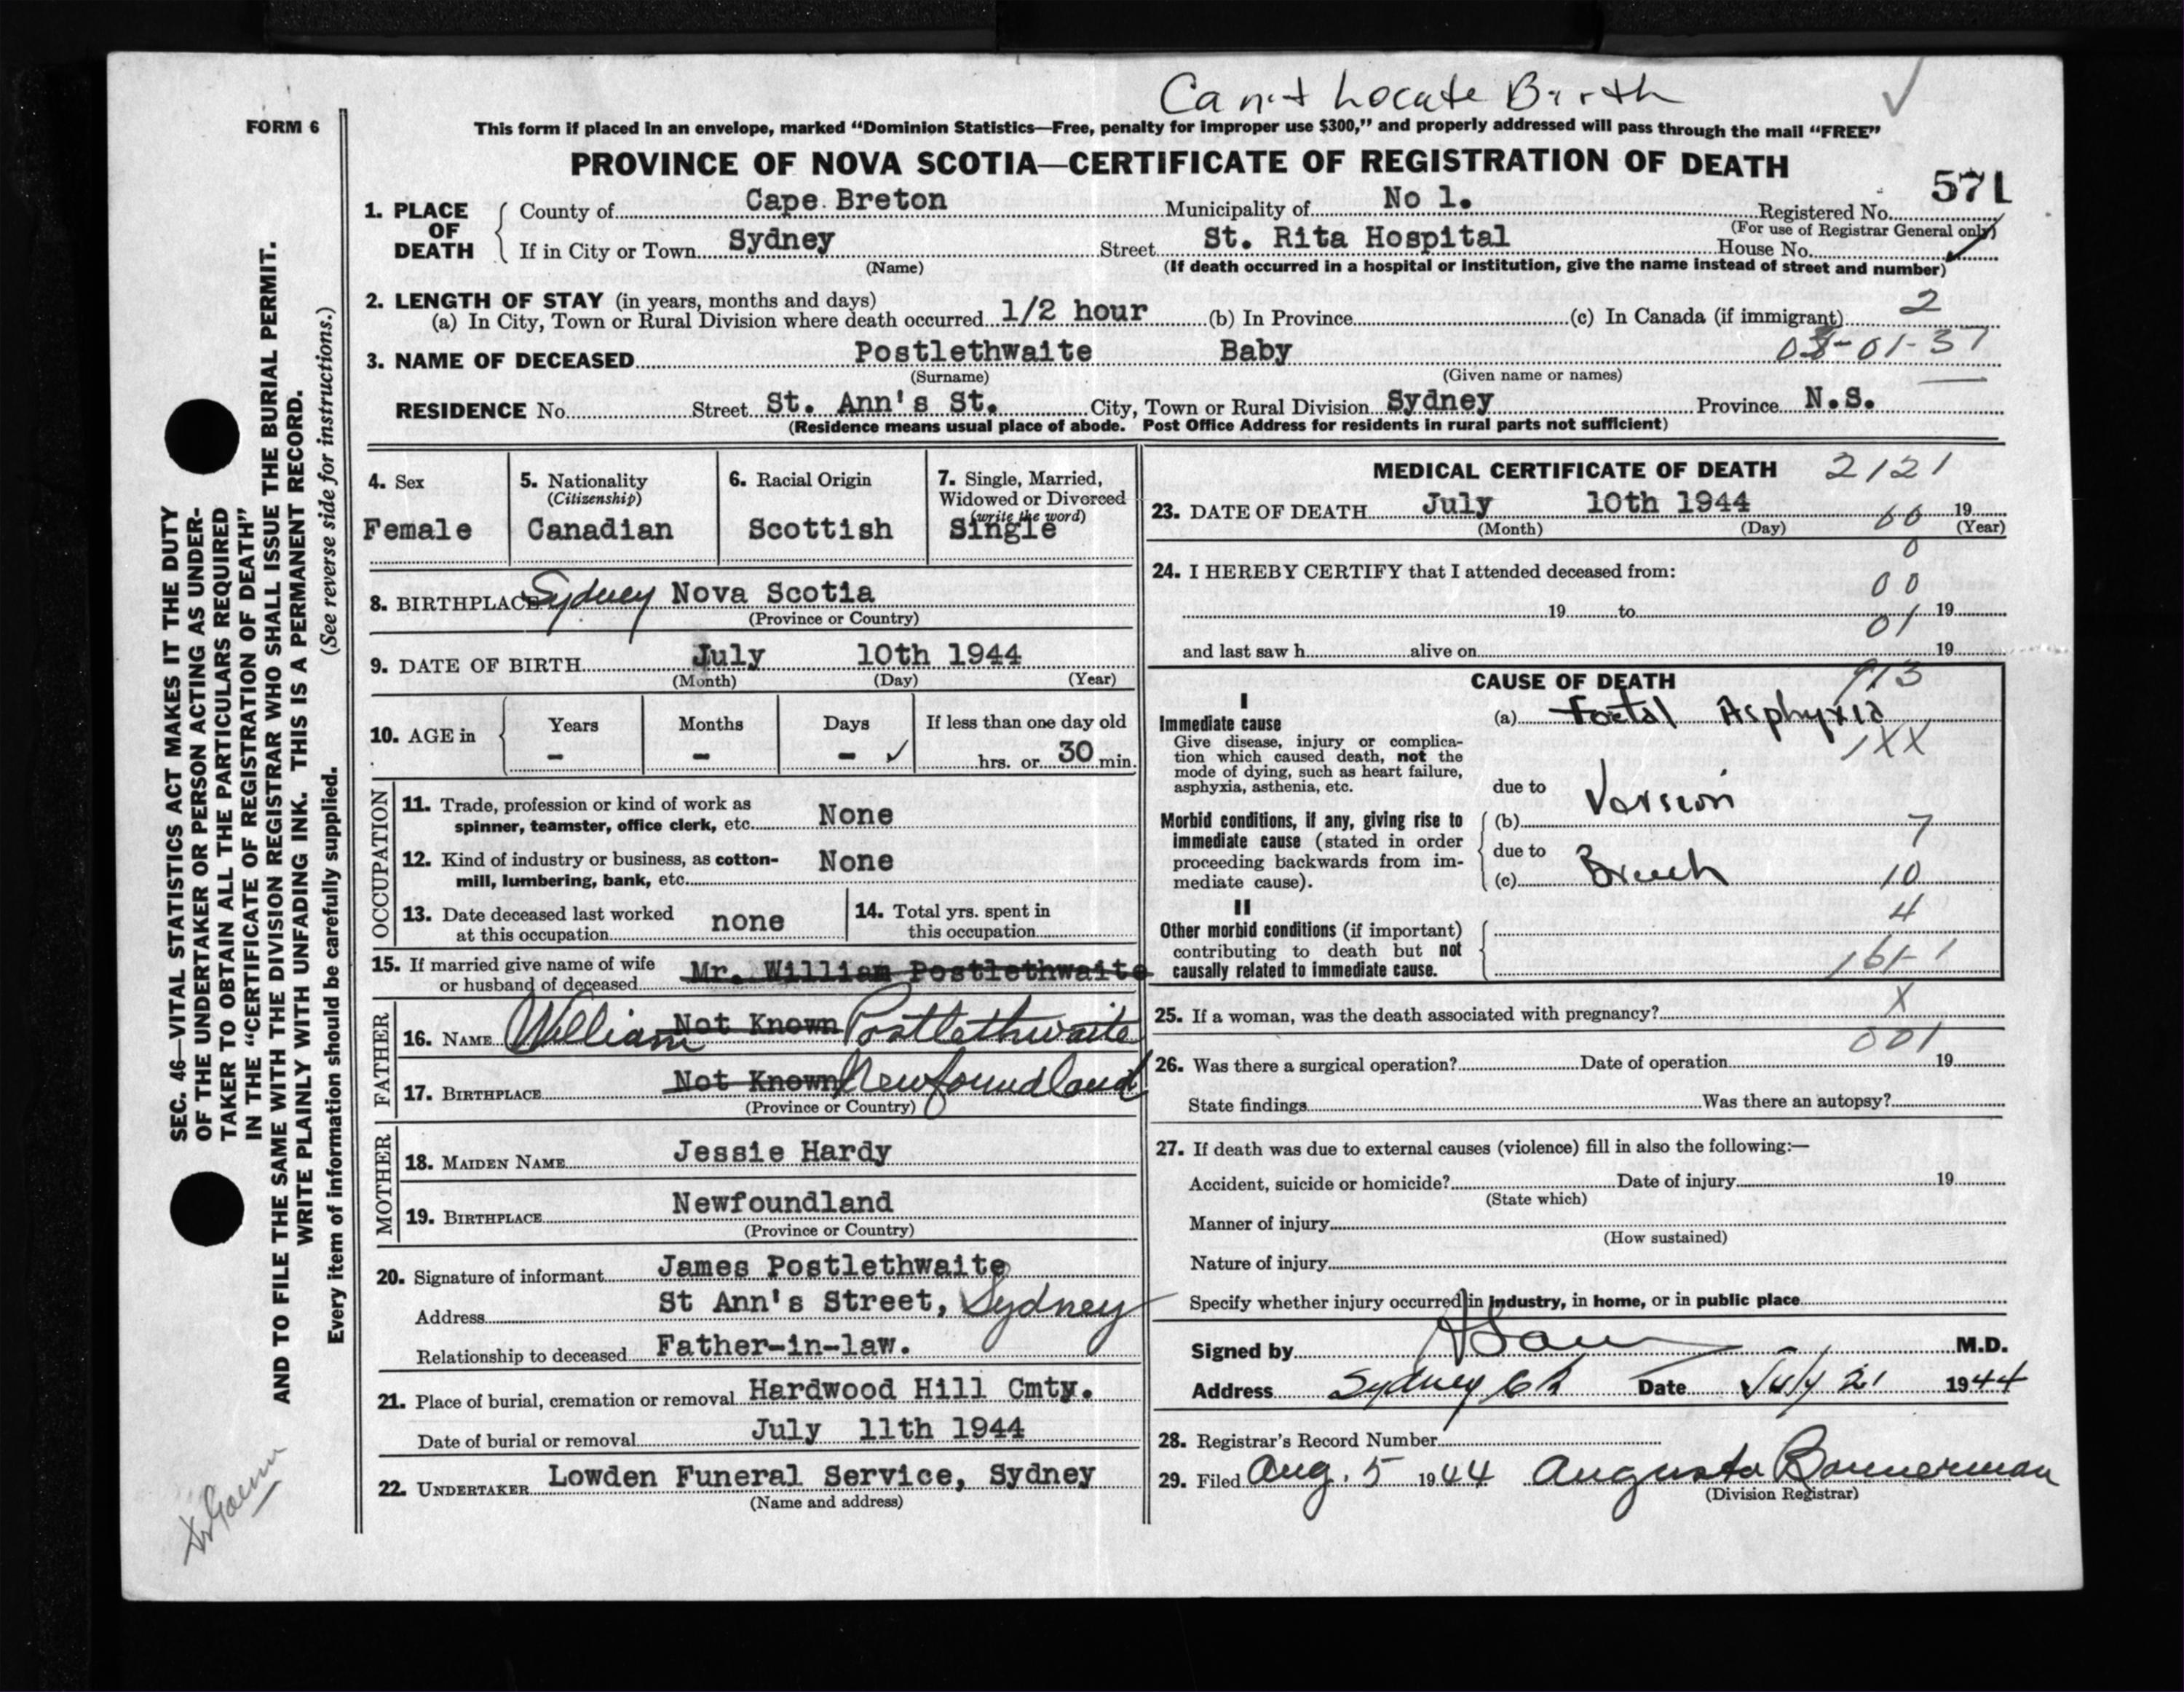 Can't Locate Birth
FORM 6
This form if placed in an envelope, marked “Dominion Statistics—Free, penalty for improper use $300,” and properly addressed will pass through the mail “FREE”
PROVINCE OF NOVA SCOTIA—CERTIFICATE OF REGISTRATION OF DEATH
571
1. PLACE OF DEATH
County of Cape Breton Municipality of No 1. Registered No.
(For use of Registrar General only)
If in City or Town Sydney Street St. Rita Hospital House No.
(Name) (If death occurred in a hospital or institution, give the name instead of street and number)
2. LENGTH OF STAY (in years, months and days)
(a) In City, Town or Rural Division where death occurred 1/2 hour (b) In Province (c) In Canada (if immigrant) 2
3. NAME OF DECEASED Postlethwaite Baby
(Surname) (Given name or names)
RESIDENCE No. Street St. Ann's St. City, Town or Rural Division Sydney Province N.S.
(Residence means usual place of abode. Post Office Address for residents in rural parts not sufficient)
4. Sex
Female
5. Nationality
(Citizenship)
Canadian
6. Racial Origin
Scottish
7. Single, Married,
Widowed or Divorced
(write the word)
Single
8. BIRTHPLACE Sydney Nova Scotia
(Province or Country)
9. DATE OF BIRTH July 10th 1944
(Month) (Day) (Year)
10. AGE in
Years Months Days If less than one day old
- - - hrs. or 30 min.
OCCUPATION
11. Trade, profession or kind of work as
spinner, teamster, office clerk, etc. None
12. Kind of industry or business, as cotton-
mill, lumbering, bank, etc. None
13. Date deceased last worked
at this occupation none
14. Total yrs. spent in
this occupation
15. If married give name of wife
or husband of deceased Mr. William Postlethwaite
FATHER
16. NAME William Not Known Postlethwaite
17. BIRTHPLACE Not Known Newfoundland
(Province or Country)
MOTHER
18. MAIDEN NAME Jessie Hardy
19. BIRTHPLACE Newfoundland
(Province or Country)
20. Signature of informant James Postlethwaite
Address St Ann's Street, Sydney
Relationship to deceased Father-in-law.
21. Place of burial, cremation or removal Hardwood Hill Cmty.
Date of burial or removal July 11th 1944
22. UNDERTAKER Lowden Funeral Service, Sydney
(Name and address)
MEDICAL CERTIFICATE OF DEATH 2121
23. DATE OF DEATH July 10th 1944 19
(Month) (Day) (Year)
66
0
24. I HEREBY CERTIFY that I attended deceased from:
00
19 to 19
01
and last saw h alive on 19
CAUSE OF DEATH 913
I
Immediate cause
Give disease, injury or complica-
tion which caused death, not the
mode of dying, such as heart failure,
asphyxia, asthenia, etc.
(a) Foetal Asphyxia
1XX
due to
Version
Morbid conditions, if any, giving rise to
immediate cause (stated in order
proceeding backwards from im-
mediate cause).
(b) 7
due to
(c) Breech 10
4
II
Other morbid conditions (if important)
contributing to death but not
causally related to immediate cause.
161-1
25. If a woman, was the death associated with pregnancy? X
001
26. Was there a surgical operation? Date of operation 19
State findings Was there an autopsy?
27. If death was due to external causes (violence) fill in also the following:—
Accident, suicide or homicide? Date of injury 19
(State which)
Manner of injury
(How sustained)
Nature of injury
Specify whether injury occurred in industry, in home, or in public place
Signed by M.D.
Address Sydney Date July 21 1944
28. Registrar's Record Number
29. Filed Aug. 5 1944 Augusta Bannerman
(Division Registrar)
SEC. 46—VITAL STATISTICS ACT MAKES IT THE DUTY
OF THE UNDERTAKER OR PERSON ACTING AS UNDER-
TAKER TO OBTAIN ALL THE PARTICULARS REQUIRED
IN THE “CERTIFICATE OF REGISTRATION OF DEATH”
AND TO FILE THE SAME WITH THE DIVISION REGISTRAR WHO SHALL ISSUE THE BURIAL PERMIT.
WRITE PLAINLY WITH UNFADING INK. THIS IS A PERMANENT RECORD.
Every item of information should be carefully supplied. (See reverse side for instructions.)